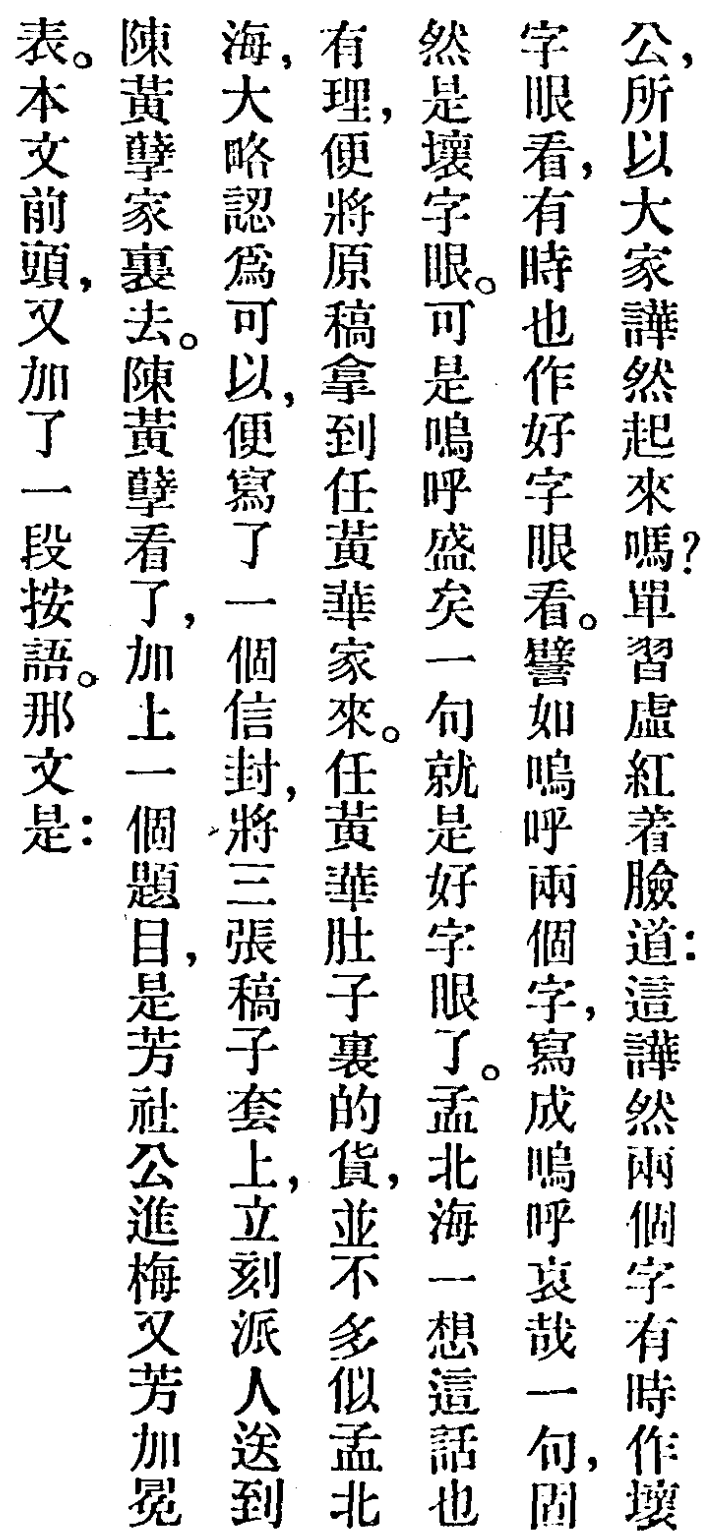 公，所以大家譁然起來嗎？單習虛紅着臉道：這譁然兩個字有時作壞
字眼看，有時也作好字眼看。譬如嗚呼兩個字，寫成嗚呼哀哉一句，固
然是壞字眼。可是嗚呼盛矣一句就是好字眼了。孟北海一想這話也
有理，便將原稿拿到任黃華家來。任黃華肚子裏的貨，並不多似孟北
海，大略認爲可以，便寫了一個信封，將三張稿子套上，立刻派人送到
陳黃孽家裏去。陳黃孽看了，加上一個題目，是芳社公進梅又芳加冕
表。本文前頭，又加了一段按語。那文是：